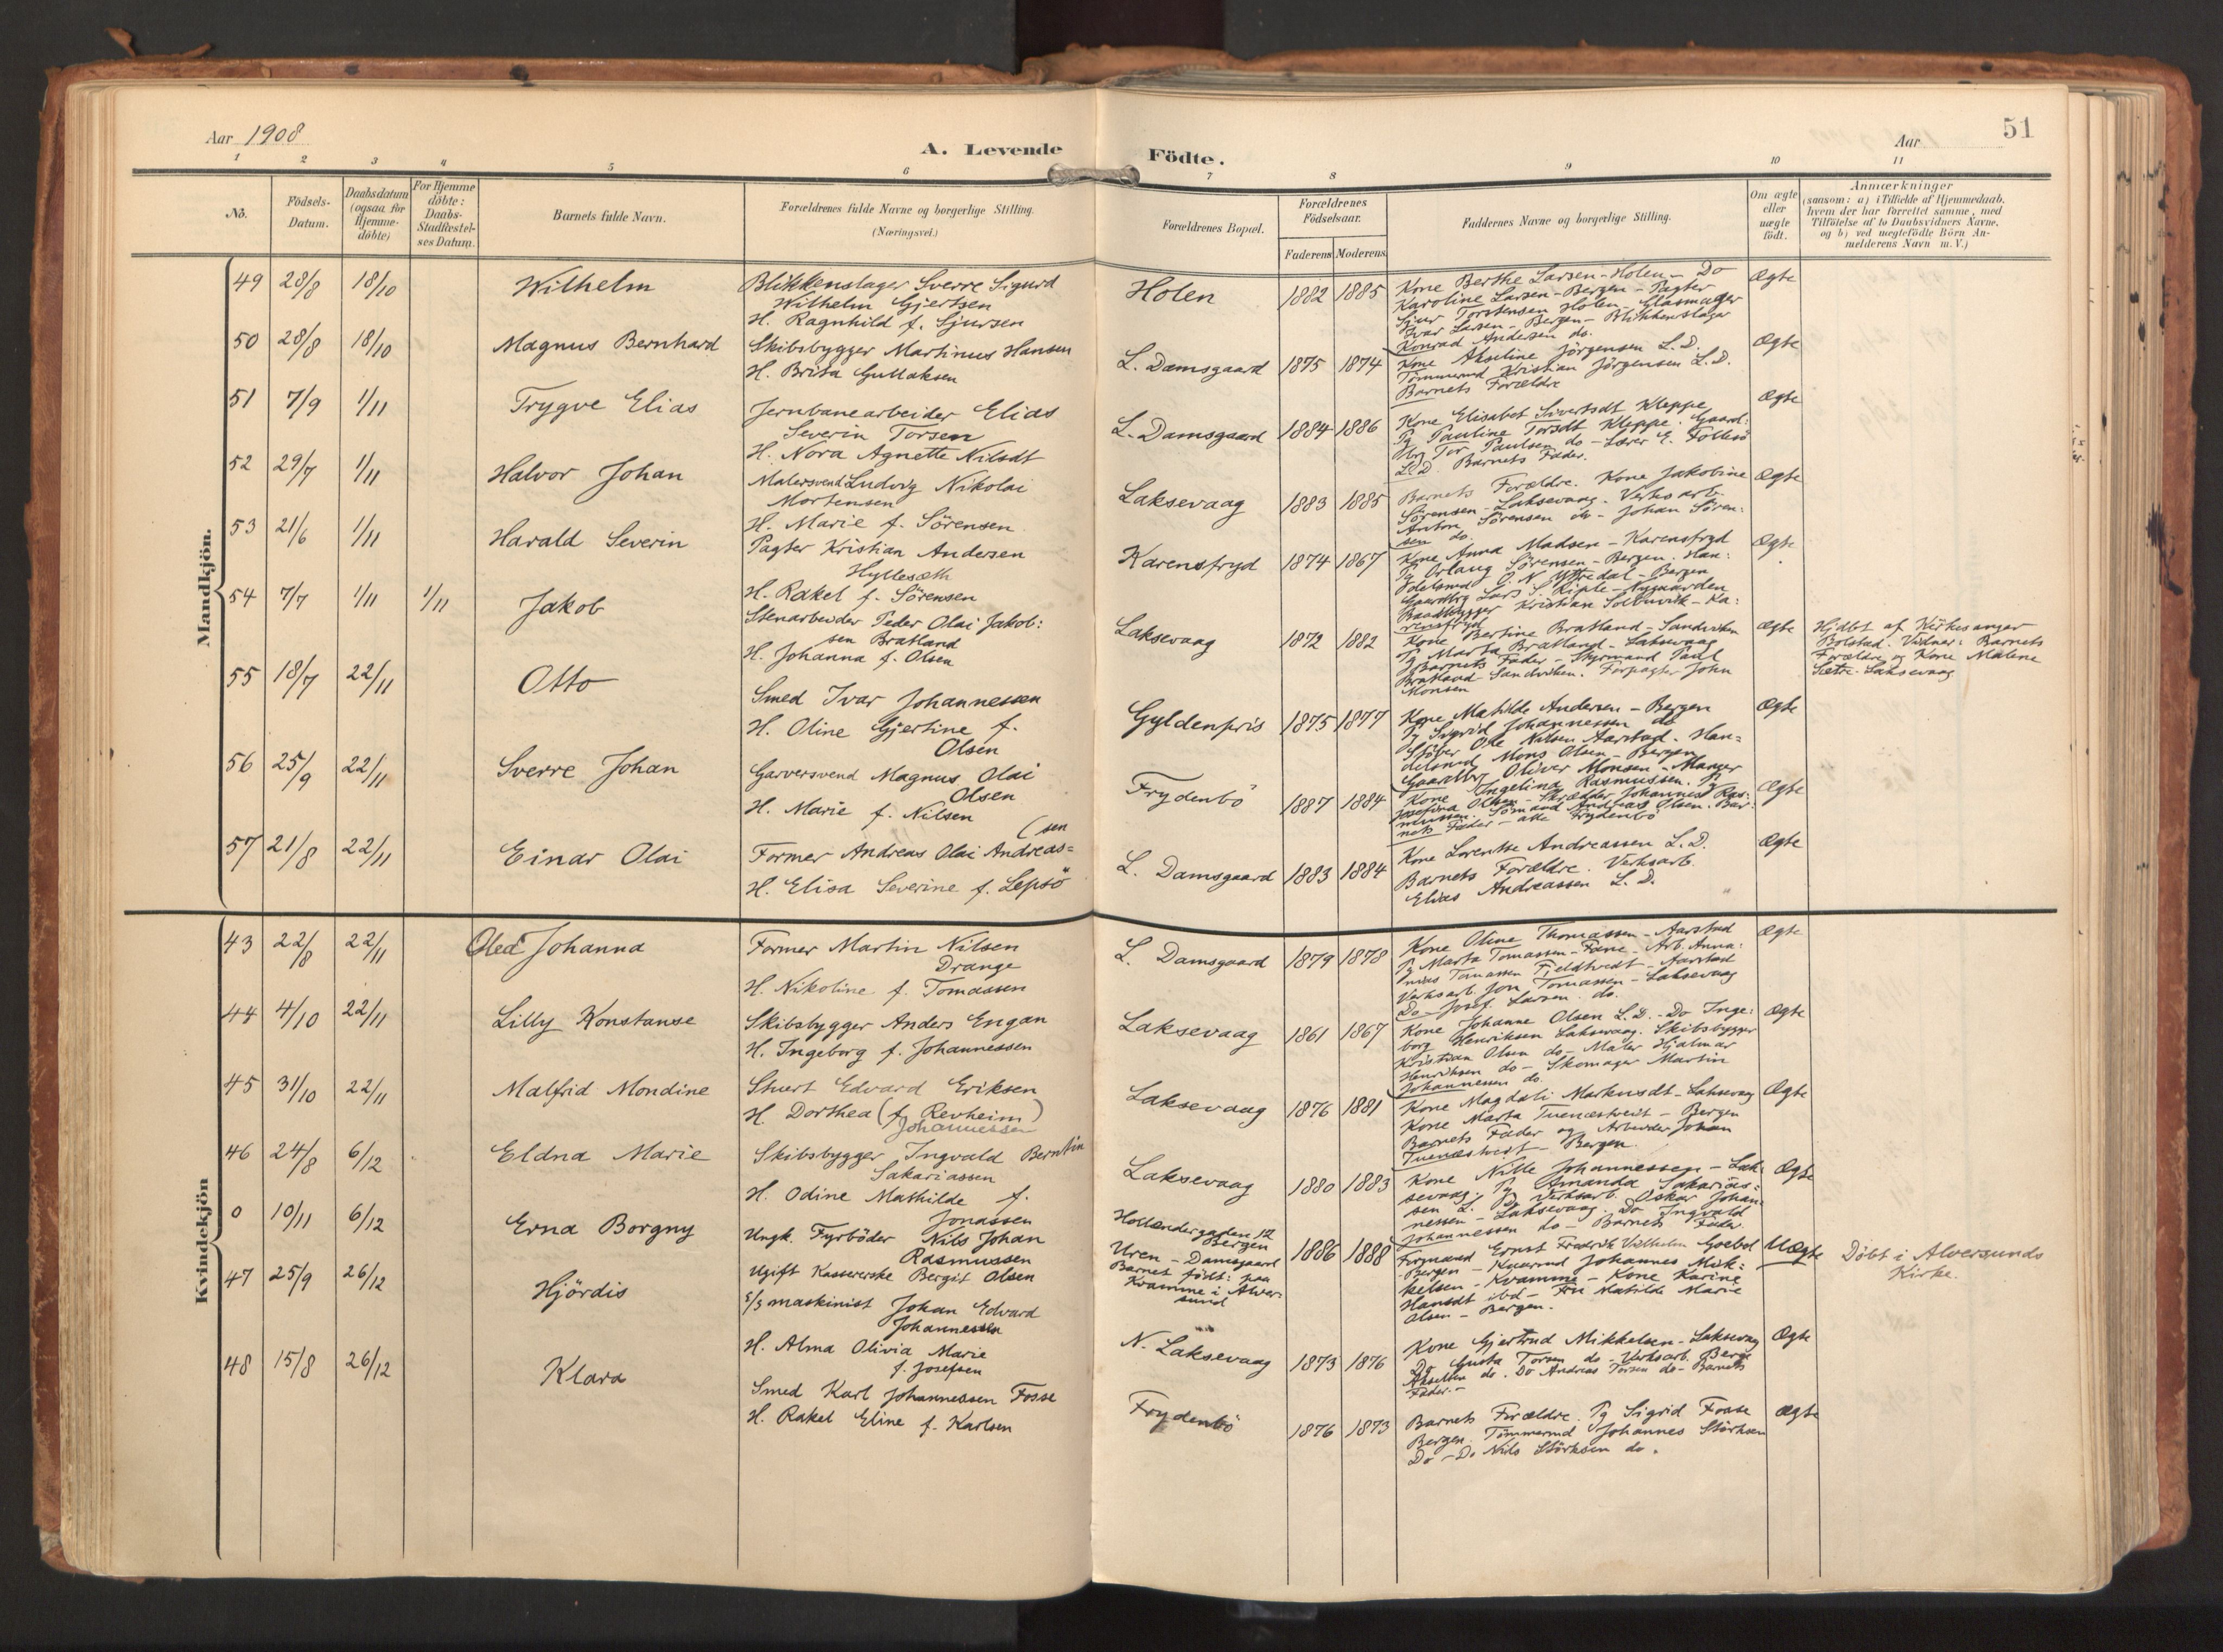 Aar 1908
A. Levende
Födte.
Aar
51
1 2 3 4 5 6 7 8 9 10 11
No.
Födsels-
Datum.
Daabsdatum
(ogsaa for
Hjemme-
döbte)
For Hjemme
döbte:
Daabs-
Stadfæstel-
ses Datum.
Barnets fulde Navn.
Forældrenes fulde Navne og borgerlige Stilling.
(Næringsvei.)
Forældrenes Bopæl.
Forældrenes
Födselsaar.
Faderens Moderens
Faddernes Navne og borgerlige Stilling.
Om ægte
eller
uægte
födt.
Anmærkninger
(saasom: a) i Tilfælde af Hjemmedaab,
hvem der har forrettet samme, med
Tilföielse af to Daabsvidners Navne,
og b) ved uægtefödte Börn An-
melderens Navn m. V.)
Mandkjön.
49 28/8 18/10 Wilhelm
Blikkenslager Sverre Sigurd
Wilhelm Gjertsen
H. Ragnhild f. Sjursen
Holen 1882 1885
Kone Berthe Larsen - Holen - Do
Karoline Larsen - Bergen - Pagter
Sjur Torstensen Holen - Glasmager
Ivar Larsen - Bergen - Blikkenslager
Konrad Andersen do.
Ægte
50 28/8 18/10 Magnus Bernhard
Skibsbygger Martinus Hansen
H. Brita Gullaksen
L. Damsgaard 1875 1874
Kone Akseline Jörgensen L. D.
Tömmermd Kristian Jörgensen L. D.
Barnets Forældre
Ægte
51 7/9 1/11 Trygve Elias
Jernbanearbeider Elias
Severin Torsen
H. Nora Agnette Nilsdt
L. Damsgaard 1884 1886
Kone Elisabet Sivertsdt Kleppe
Pg Pauline Torsdt Kleppe. Gaard:
brg Tor Paulsen do - Lærer E. Follesö
L. D. Barnets Fader.
Ægte
52 29/7 1/11 Halvor Johan
Malersvend Ludvig Nikolai
Mortensen
H. Marie f. Sörensen
Laksevaag 1883 1885
Barnets Forældre. Kone Jakobine
Sörensen - Laksevaag. Verksarb.
Anton Sörensen do - Johan Sören:
sen do.
Ægte
53 21/6 1/11 Harald Severin
Pagter Kristian Andersen
Hyllesæth
H. Rakel f. Sörensen
Karensfryd 1874 1867
Kone Anna Madsen - Karensfryd
Pg Orlaug Sörensen - Bergen. Han:
delsmd O. N. Yttredal - Bergen
Gaardbrg Lars S. Riple - Nygaarden
Baadbygger Kristian Solbuvik - Ka:
rensfryd
Ægte
54 7/7 1/11 1/11 Jakob
Stenarbeider Peder Olai Jakob:
sen Bratland
H. Johanna f. Olsen
Laksevaag 1872 1882
Kone Bertine Bratland - Sandviken
Pg Marta Bratland - Laksevaag
Barnets Fader - Styrmand Paul
Bratland - Sandviken. Forpagter John
Monsen
Ægte
Hjdbt. af Kirkesanger
Bolstad. Vidner: Barnets
Forældre og Kone Malene
Sætre - Laksevaag
55 18/7 22/11 Otto
Smed Ivar Johannessen
H. Oline Gjertine f.
Olsen
Gyldenpris 1875 1877
Kone Matilde Andersen - Bergen
Pg Sigrid Johannessen do
Stöber Ole Nilsen Aarstad. Han=
delsmd Mons Olsen - Bergen
Gaardbrg Oliver Monsen - Manger
Ægte
56 25/9 22/11 Sverre Johan
Garversvend Magnus Olai
Olsen
H. Marie f. Nilsen
Frydenbö 1887 1884
Kone Ingelina Rasmussen. Pg
Josefina Olsen - Skrædder Johannes Ras:
mussen. Sömand Andreas Olsen. Bar:
nets Fader - alle Frydenbö
Ægte
57 21/8 22/11 Einar Olai
(sen
Former Andreas Olai Andreas=
H. Elisa Severine f. Lepsö
L. Damsgaard 1883 1884
Kone Lorentse Andreassen L. D.
Barnets Forældre. Verksarb.
Elias Andreassen L. D.
Ægte
Kvindekjön
43 22/8 22/11 Olea Johanna
Former Martin Nilsen
Drange
H. Nikoline f. Tomassen
L. Damsgaard 1879 1878
Kone Oline Thomassen - Aarstad
Pg Marta Tomassen - Fane - Arb. Anna:
nias Tomassen Fjeldtvedt - Aarstad
Verksarb. Jon Tomassen - Laksevaag
Do - Josef Larsen do.
Ægte
44 4/10 22/11 Lilly Konstanse
Skibsbygger Anders Engan
H. Ingeborg f. Johannessen
Laksevaag 1861 1867
Kone Johanne Olsen L. D. - Do Inge:
borg Henriksen Laksevaag. Skibsbygger
Kristian Olsen do - Maler Hjalmar
Henriksen do - Skomager Martin
Johannessen do.
Ægte
45 31/10 22/11 Malfrid Mondine
Stuert Edvard Eriksen
H. Dorthea (f. Revheim)
Johannessen
Laksevaag 1876 1881
Kone Magdali Markusdt - Laksevaag
Kone Marta Tuenæstvedt - Bergen
Barnets Fader og Arbeider Johan
Tuenæstvedt - Bergen.
Ægte
46 24/8 6/12 Eldna Marie
Skibsbygger Ingvald Berntin
Sakariassen
H. Odine Mathilde f.
Jonassen
Laksevaag 1880 1883
Kone Nille Johannessen - Lak:
sevaag. Pg Amanda Sakarias:
sen L. Pg Verksarb. Oskar Johan:
nessen - Laksevaag. Do Ingvald
Johannessen do - Barnets Fader.
Ægte
0 10/11 6/12 Erna Borgny
Ungk. Fyrböder Nils Johan
Rasmussen
Ugift Kassererske Bergit Olsen
Hollændergaden 12
Bergen
Uren - Damsgaard
Barnet født: paa
Kvamme i Alver-
sund
1886 1888
Firmand Ernst Fredrik Vilhelm Goebel
- Bergen - Kaarmd Johannes Mik:
kelsen - Kvamme - Kone Karine
Hansdt ibd - Fru Matilde Marie
Olsen - Bergen.
Uægte
Døbt i Alversunds
Kirke.
47 25/9 26/12 Hjördis
S/S maskinist Johan Edvard
Johannessen
H. Alma Olivia Marie
f. Josefsen
N. Laksevaag 1873 1876
Kone Gjertrud Mikkelsen - Laksevaag
Do Gusta Torsen do - Verksarb. Berge
Akselsen do. Do Andreas Torsen do - Barnets
Fader. -
Ægte
48 15/8 26/12 Klara
Smed Karl Johannessen Fosse
H. Rakel Eline f. Karlsen
Frydenbö 1876 1873
Barnets Forældre. Pg Sigrid Fosse
Bergen. Tömmermd Johannes Störksen
Do - Do Nils Störksen do.
Ægte